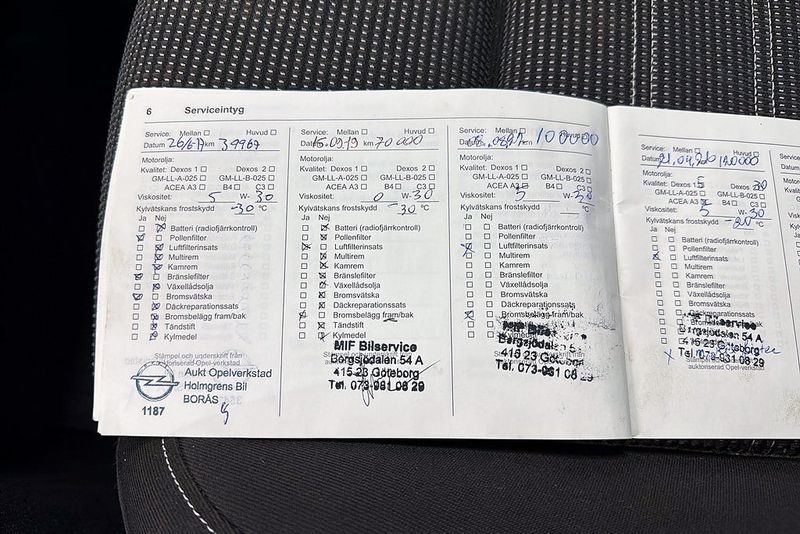 6 Serviceintyg
Service: Mellan Huvud
Datum 26/6-17 km 39967
Motorolja:
Kvalitet: Dexos 1 Dexos 2
GM-LL-A-025 GM-LL-B-025
ACEA A3 B4 C3
Viskositet: 5 W-30
Kylvätskans frostskydd -30 °C
Ja Nej
Batteri (radiofjärrkontroll)
Pollenfilter
Luftfilterinsats
Multirem
Kamrem
Bränslefilter
Växellådsolja
Bromsvätska
Däckreparationssats
Bromsbelägg fram/bak
Tändstift
Kylmedel
Stämpel och underskrift från
auktoriserad Opel-verkstad
Aukt Opelverkstad
Holmgrens Bil
BORÅS
1187
Service: Mellan Huvud
Datum 15.09.19 km 70000
Motorolja:
Kvalitet: Dexos 1 Dexos 2
GM-LL-A-025 GM-LL-B-025
ACEA A3 B4 C3
Viskositet: 0 W-30
Kylvätskans frostskydd -30 °C
Ja Nej
Batteri (radiofjärrkontroll)
Pollenfilter
Luftfilterinsats
Multirem
Kamrem
Bränslefilter
Växellådsolja
Bromsvätska
Däckreparationssats
Bromsbelägg fram/bak
Tändstift
Kylmedel
MIF Bilservice
Bergsjödalen 54 A
415 23 Göteborg
Tel. 073-981 08 29
Service: Mellan Huvud
km 100000
Motorolja:
Kvalitet: Dexos 1 Dexos 2
GM-LL-A-025 GM-LL-B-025
ACEA A3 B4 C3
Viskositet: 5 W-30
Kylvätskans frostskydd °C
Ja Nej
Batteri (radiofjärrkontroll)
Pollenfilter
Luftfilterinsats
Multirem
Kamrem
Bränslefilter
Växellådsolja
Bromsvätska
Däckreparationssats
Bromsbelägg fram/bak
MIF Bilservice
Bergsjödalen 54 A
415 23 Göteborg
Tel. 073-981 08 29
Service: Mellan Huvud
Datum 120000
Motorolja:
Kvalitet: Dexos 1 Dexos 2
GM-LL-A-025 GM-LL-B-025
ACEA A3 B4 C3
Viskositet: 5 W-30
Kylvätskans frostskydd -20 °C
Ja Nej
Batteri (radiofjärrkontroll)
Pollenfilter
Luftfilterinsats
Multirem
Kamrem
Bränslefilter
Växellådsolja
Bromsvätska
Däckreparationssats
Bilservice
Bergsjödalen 54 A
415 23 Göteborg
Tel. 073-981 08 29
auktoriserad Opel-verkstad